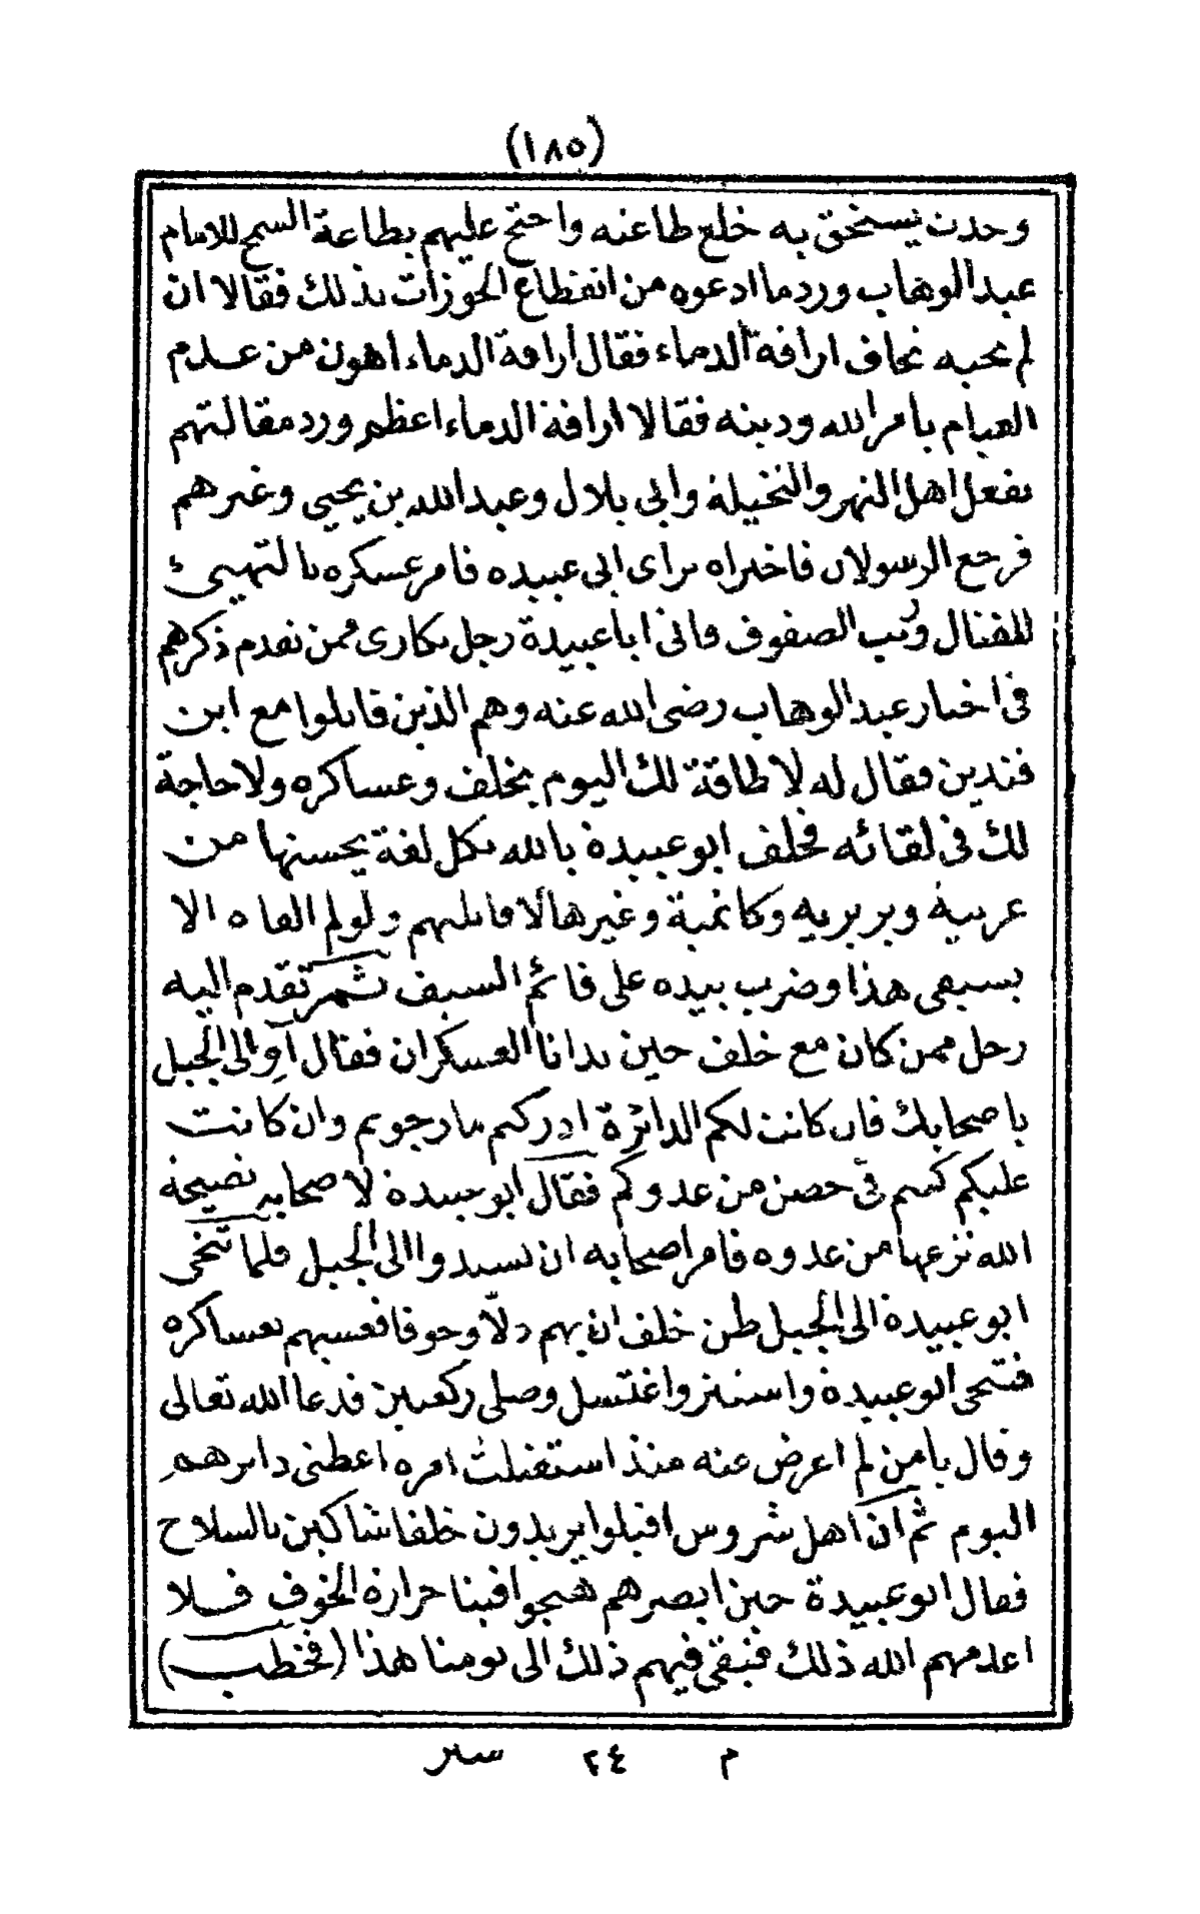 (١٨٥)
وحدث يستحق به خلع طاعته واحتج عليهم بطاعة السمح للامام
عبد الوهاب ورد ما ادعوه من انقطاع الحوزات بذلك فقالا ان
لم تجبه نخاف اراقة الدماء فقال اراقة الدماء اهون من عدم
القيام بامر الله ودينه فقالا اراقة الدماء اعظم ورد مقالتهم
بفعل اهل النهر والنخيلة وابى بلال وعبد الله بن يحيى وغيرهم
فرجع الرسولان فاخبراه براى ابى عبيده فامر عسكره بالتهيئ
للقتال ورتب الصفوف واتى ابا عبيدة رجل بكارى ممن تقدم ذكرهم
فى اخبار عبد الوهاب رضى الله عنه وهم الذين قاتلوا مع ابن
فندين فقال له لا طاقة لك اليوم بخلف وعساكره ولا حاجة
لك فى لقائه فحلف ابو عبيدة بالله بكل لغة يحسنها من
عربية وبربريه وكانمية وغيرها لاقاتلهم ولو لم القاه الا
بسيفى هذا وضرب بيده على قائم السيف ثم تقدم اليه
رجل ممن كان مع خلف حين تدانا العسكران فقال آو الى الجبل
باصحابك فان كانت لكم الدائرة ادركتم ما رجوتم وان كانت
عليكم كنتم فى حصن من عدوكم فقال ابو عبيدة لاصحابه نصيحة
الله نزعها من عدوه فامر اصحابه ان يسندوا الى الجبل فلما تنحى
ابو عبيدة الى الجبل ظن خلف ان بهم ذلا وخوفا فغشيهم بعساكره
فتنحى ابو عبيدة واستتر واغتسل وصلى ركعتين فدعا الله تعالى
وقال يا من لم اعرض عنه منذ استقبلت امره اعطنى دابرهم
اليوم ثم ان اهل شروس اقبلوا يريدون خلفا شاكين بالسلاح
فقال ابو عبيدة حين ابصرهم هيجوا فينا حرارة الخوف فلا
اعدمهم الله ذلك فبقى فيهم ذلك الى يومنا هذا (فخطب)
م ٢٤ سير